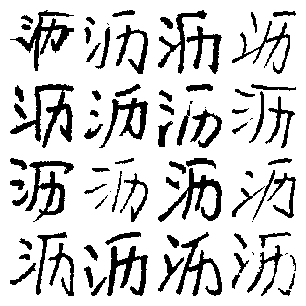 沥沥沥沥
沥沥沥沥
沥沥沥沥
沥沥沥沥